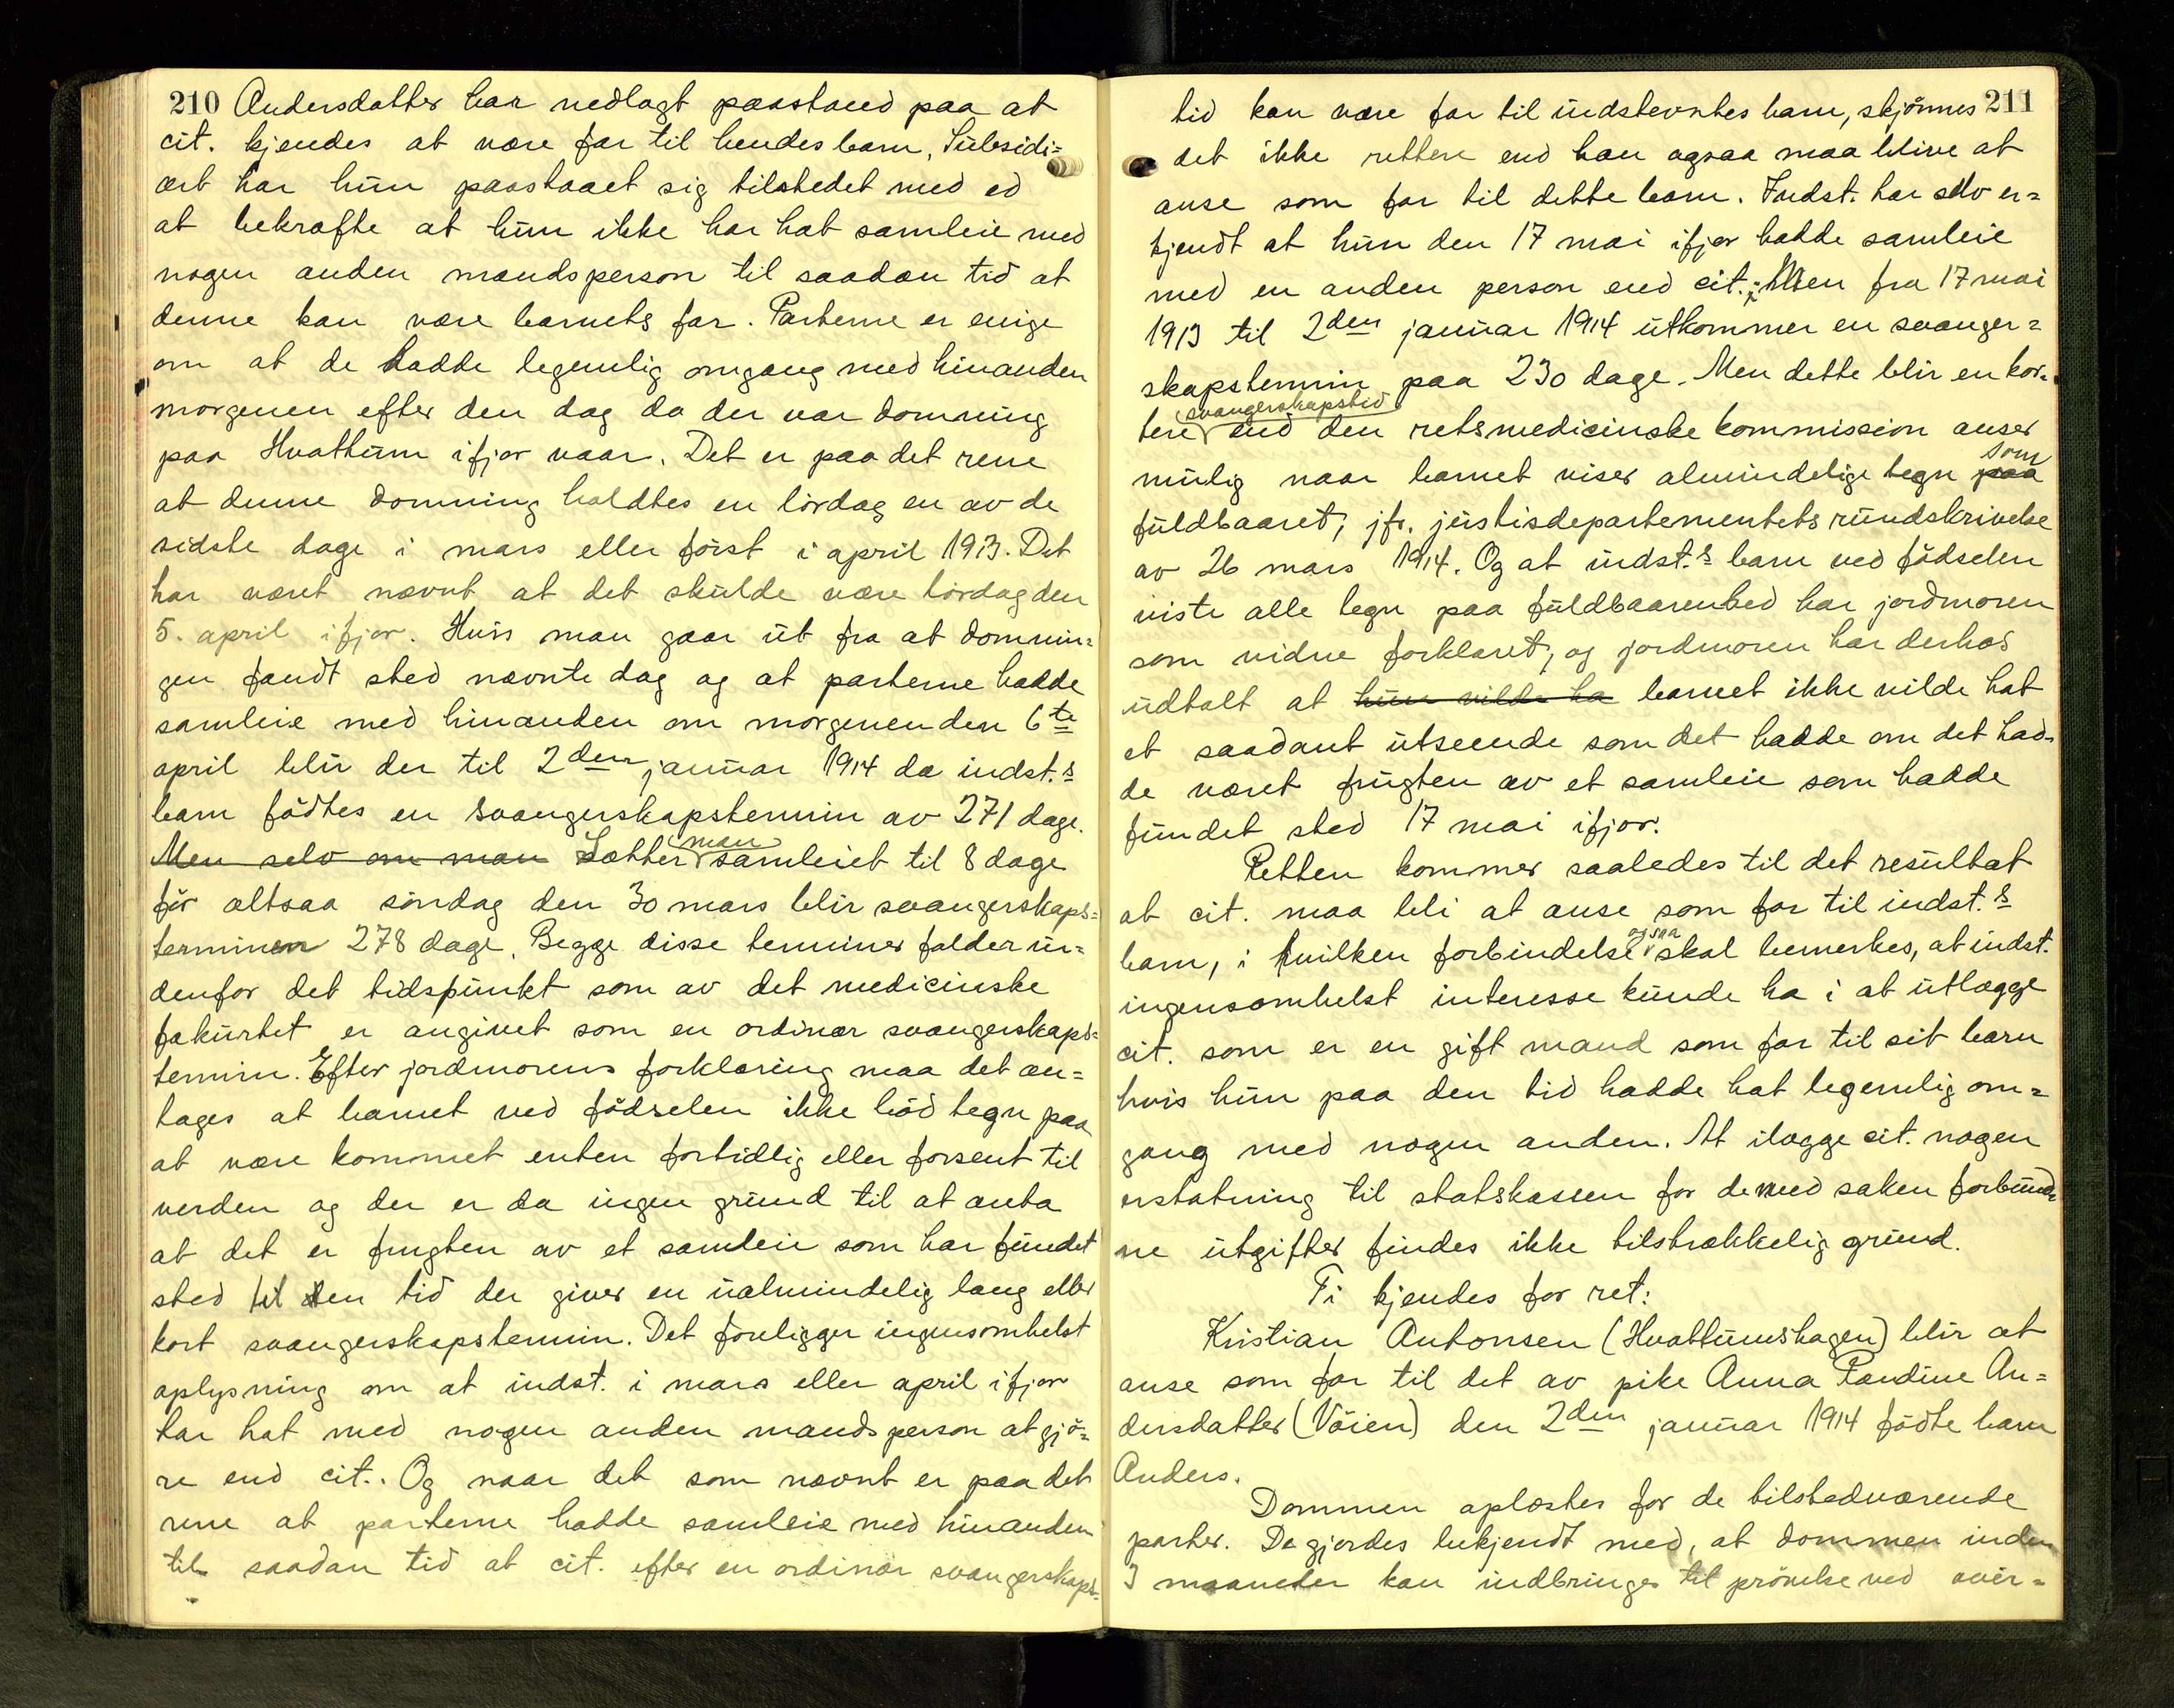 210 Andersdatter har nedlagt paastand paa at
cit. kjendes at være far til hendes barn, Subsidi=
ært har hun paastaaet sig tilstedet med ed
at bekræfte at hun ikke har hat samleie med
nogen anden mandsperson til saadan tid at
denne kan være barnets far. Parterne er enige
om at de hadde legemlig omgang med hinanden
morgenen efter den dag da der var domning
paa Hvattum ifjor vaar. Det er paa det rene
at denne domning holdtes en lördag en av de
sidste dage i mars eller först i april 1913. Det
har været nævnt at det skulde være lördag den
5. april ifjor. Hvis man gaar ut fra at domnin=
gen fandt sted nævnte dag og at parterne hadde
samleie med hinanden om morgenen den 6te
april blir der til 2den januar 1914 da indst.s
barn födtes en svangerskapstermin av 271 dage.
Men selv om man Sætter man samleiet til 8 dage
för altsaa söndag den 30 mars blir svangerskaps=
terminen 278 dage. Begge disse terminer falder in=
denfor det tidspunkt som av det medicinske
fakultet er angivet som en ordinær svangerskaps=
termin. Efter jordmorens forklaring maa det an=
tages at barnet ved födselen ikke böd tegn paa
at være kommet enten fortidlig eller forsent til
verden og der er da ingen grund til at anta
at det er frugten av et samleie som har fundet
sted til den tid der giver en ualmindelig lang eller
kort svangerskapstermin. Det foreligger ingensomhelst
oplysning om at indst. i mars eller april ifjor
har hat med nogen anden mandsperson at gjö=
re end cit.. Og naar det som nævnt er paa det
rene at parterne hadde samleie med hinanden
til saadan tid at cit. efter en ordinær svangerskaps=
211
tid kan være far til indstevntes barn, skjönnes
det ikke rettere end han ogsaa maa blive at
anse som far til dette barn. Indst. har selv er=
kjendt at hun den 17 mai ifjor hadde samleie
med en anden person end cit.; Men fra 17 mai
1913 til 2den januar 1914 utkommer en svanger=
skapstermin paa 230 dage. Men dette blir en kor=
tere svangerskapstid end den retsmedicinske kommission anser
mulig naar barnet viser almindelige tegn paa som
fuldbaaret, jfr. justisdepartementets rundskrivelse
av 26 mars 1914. Og at indst.s barn ved födselen
viste alle tegn paa fuldbaarenhed har jordmoren
som vidne forklaret, og jordmoren har derhos
udtalt at hun vilde ha barnet ikke vilde hat
et saadant utseende som det hadde om det had=
de været frugten av et samleie som hadde
fundet sted 17 mai ifjor.
Retten kommer saaledes til det resultat
at cit. maa bli at anse som far til indst.s
barn, i hvilken forbindelse ogsaa skal bemerkes, at indst.
ingensomhelst interesse kunde ha i at utlægge
cit. som er en gift mand som far til sit barn
hvis hun paa den tid hadde hat legemlig om=
gang med nogen anden. At ilægge cit. nogen
erstatning til statskassen for de med saken forbund=
ne utgifter findes ikke tilstrækkelig grund.
Ti kjendes for ret:
Kristian Antonsen (Hvattumshagen) blir at
anse som far til det av pike Anna Pandine An=
dersdatter (Vöien) den 2den januar 1914 födte barn
Anders.
Dommen oplæstes for de tilstedværende
parter. De gjordes bekjendt med, at dommen inden
3 maaneder kan indbringes til prövelse ved over=